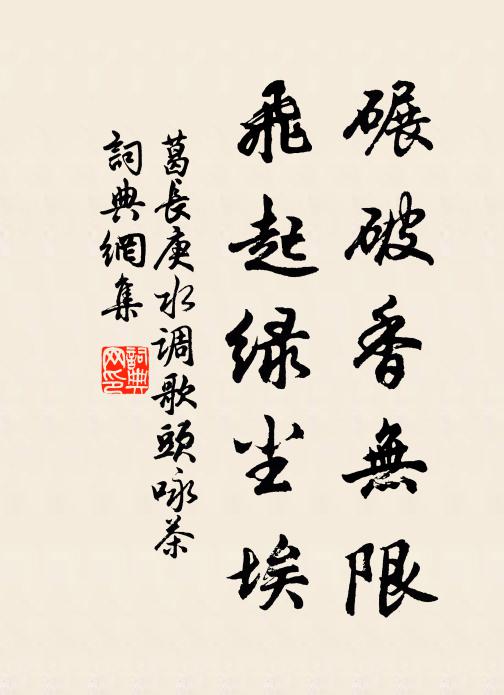 碾破香無限
飛起绿尘埃
葛長庚水调歌頭咏茶
詞典網集
詞典网印